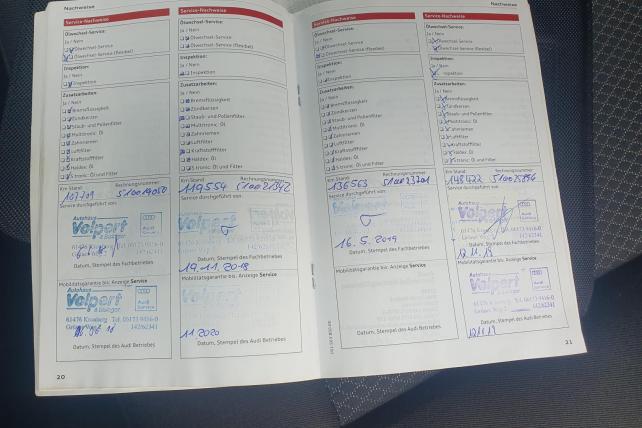 Nachweise
Service-Nachweise
Ölwechsel-Service:
Ja / Nein
Ölwechsel-Service
Ölwechsel-Service (flexibel)
Inspektion:
Ja / Nein
Inspektion
Zusatzarbeiten:
Ja / Nein
Bremsflüssigkeit
Zündkerzen
Staub- und Pollenfilter
Multitronic: Öl
Zahnriemen
Luftfilter
Kraftstofffilter
Haldex: Öl
S tronic: Öl und Filter
Km Stand Rechnungsnummer
107709 510019050
Service durchgeführt von:
Autohaus
Velpert
61476 Kronberg Tel. 06173 9416-0
Datum, Stempel des Fachbetriebes
Mobilitätsgarantie bis: Anzeige Service
Autohaus
Velpert
Audi
Service
61476 Kronberg Tel. 06173 9416-0
142/62341
Datum, Stempel des Audi Betriebes
20
Service-Nachweise
Ölwechsel-Service:
Ja / Nein
Ölwechsel-Service
Ölwechsel-Service (flexibel)
Inspektion:
Ja / Nein
Inspektion
Zusatzarbeiten:
Ja / Nein
Bremsflüssigkeit
Zündkerzen
Staub- und Pollenfilter
Multitronic: Öl
Zahnriemen
Luftfilter
Kraftstofffilter
Haldex: Öl
S tronic: Öl und Filter
Km Stand Rechnungsnummer
119554 510021342
Service durchgeführt von:
Autohaus
Velpert
Datum, Stempel des Fachbetriebes
19.11.2018
Mobilitätsgarantie bis: Anzeige Service
11 2020
Datum, Stempel des Audi Betriebes
Nachweise
Service-Nachweise
Ölwechsel-Service:
Ja / Nein
Ölwechsel-Service
Ölwechsel-Service (flexibel)
Inspektion:
Ja / Nein
Inspektion
Zusatzarbeiten:
Ja / Nein
Bremsflüssigkeit
Zündkerzen
Staub- und Pollenfilter
Multitronic: Öl
Zahnriemen
Luftfilter
Kraftstofffilter
Haldex: Öl
S tronic: Öl und Filter
Km Stand Rechnungsnummer
136563 510023701
Service durchgeführt von:
16.5.2019
Datum, Stempel des Fachbetriebes
Mobilitätsgarantie bis: Anzeige Service
Datum, Stempel des Audi Betriebes
Service-Nachweise
Ölwechsel-Service:
Ja / Nein
Ölwechsel-Service
Ölwechsel-Service (flexibel)
Inspektion:
Ja / Nein
Inspektion
Zusatzarbeiten:
Ja / Nein
Bremsflüssigkeit
Zündkerzen
Staub- und Pollenfilter
Multitronic: Öl
Zahnriemen
Luftfilter
Kraftstofffilter
Haldex: Öl
S tronic: Öl und Filter
Km Stand Rechnungsnummer
148422 510025896
Service durchgeführt von:
Velpert
Datum, Stempel des Fachbetriebes
12.11.19
Mobilitätsgarantie bis: Anzeige Service
Velpert
Datum, Stempel des Audi Betriebes
21